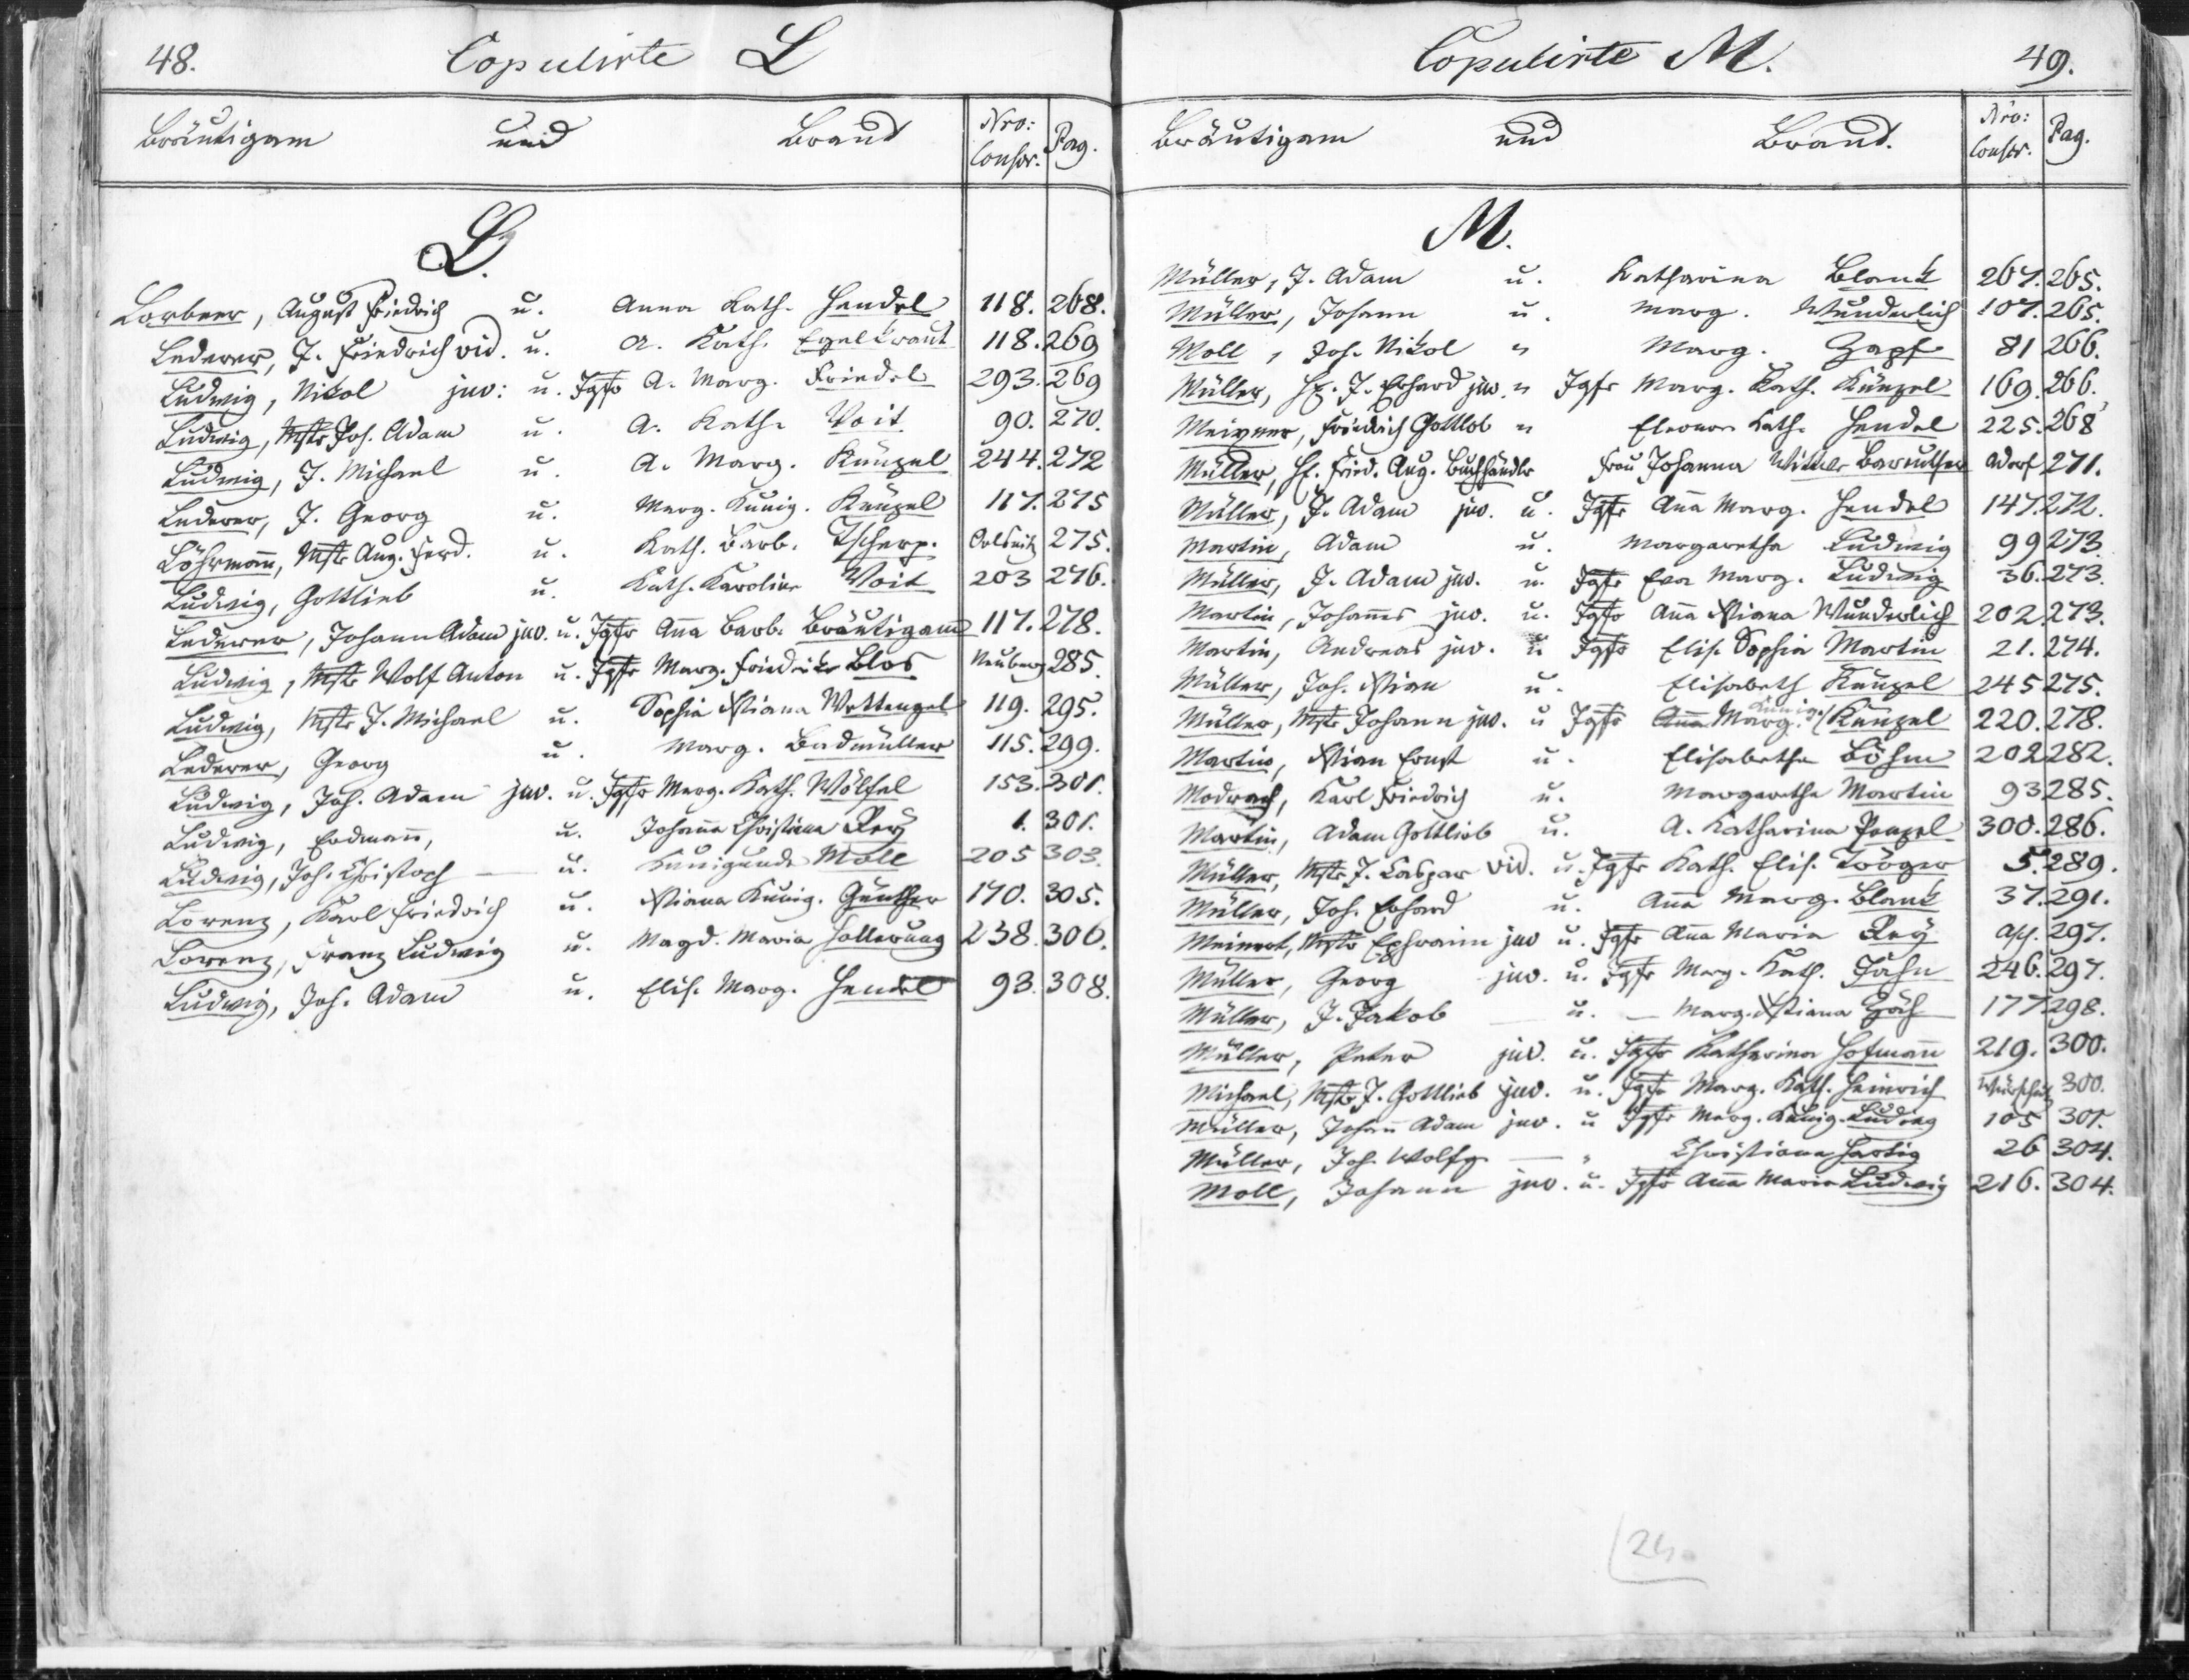 48. Copulirte L
Bräutigam und Braut Nro: Conscr. Pag.
L.
Lorbeer, August Friedrich u. Anna Kath. Hendel 118. 268.
Lederer, J. Friedrich vid. u. A. Kath. Egelkraut 118. 269
Ludwig, Nikol juv: u. Jgfr A. Marg. Friedel 293. 269
Ludwig, Mstr Joh. Adam u. A. Kath. Voit 90. 270.
Ludwig, J. Michael u. A. Marg. Künzel 244. 272
Lederer, J. Georg u. Marg. Kunig. Künzel 117. 275
Löhrmañ, Mstr Aug. Ferd. u. Kath. Barb. Tscherp. Oelsnitz 275.
Ludwig, Gottlieb u. Kath. Karoline Voit 203 276.
Lederer, Johann Adam juv. u. Jgfr Aña Barb. Bräutigam 117. 278.
Ludwig, Mstr Wolf Anton u. Jgfr Marg. Friedrike Blos Neuberg 285.
Ludwig, Mstr J. Michael u. Sophia Xstiana Wettengel 119. 295.
Lederer, Georg u. Marg. Badmüller 115. 299.
Ludwig, Joh. Adam juv. u. Jgfr Marg. Kath. Wölfel 153. 301.
Ludwig, Erdmañ, u. Johaña Christiana Roy 1. 301.
Ludwig, Joh. Christoph — u. Kunigunde Moll 205 303.
Lorenz, Karl Friedrich u. Xstiana Kunig. Günther 170. 305.
Lorenz, Franz Ludwig u. Magd. Maria Hollerung 238. 306.
Ludwig, Joh. Adam u. Elis. Marg. Hendel 93. 308.
Copulirte M. 49.
Bräutigam und Braut. Nro: Conscr. Pag.
M.
Müller, J. Adam u. Katharina Blank 267. 265.
Müller, Johann u. Marg. Wunderlich 107. 265.
Moll, Joh. Nikol " Marg. Zapf 81 266.
Müller, J. Erhard juv. " Jgfr Marg. Kath. Künzel 169. 266.
Meixner, Friedrich Gottlob " Eleonor Kath. Hendel 225. 268
Müller, H. Fried. Aug. Buchhändlr Frau Johanna Baruther Adorf 271.
Müller, J. Adam juv. u. Jgfr Aña Marg. Hendel 147. 272.
Martin, Adam u. Margaretha Ludwig 99 273.
Müller, J. Adam juv. u. Jgfr Eva Marg. Ludwig 36. 273.
Martin, Johañes juv. u. Jgfr Aña Xtiana Wunderlich 202. 273.
Martin, Andreas juv. u Jgfr Elis. Sophia Martin 21. 274.
Müller, Joh. Xtian u. Elisabeth Künzel 245 275.
Müller, Mstr Johann juv. u Jgfr Marg. Kunig. Künzel 220. 278.
Martin, Xtian Ernst u. Elisabetha Böhm 202 282.
Modrach, Karl Friedrich u. Margaretha Martin 93 285.
Martin, Adam Gottlieb u. A. Katharina Penzel 300. 286.
Müller, Mstr J. Caspar vid. u. Jgfr Kath. Elis. Tröger 5. 289.
Müller, Joh. Erhard u. Aña Marg. Blank 37. 291.
Meinert, Mstr Ephraim juv u. Jgfr Aña Maria Roy 297.
Müller, Georg juv. u. Jgfr Marg. Kath. Jahn 246. 297.
Müller, J. Jakob — u. — Marg. Xstiana Zöh 177 298.
Müller, Peter juv. u. Jgfr Katharina Hofmañ 219. 300.
Michael, Mstr J. Gottlieb juv. u. Jgfr Marg. Kath. Heinrich 300.
Müller, Johañ Adam juv. u Jgfr Marg. Kunig. Ludwig 105 301.
Müller, Joh. Wolfg. — " Christiana Hartig 26 304.
Moll, Johann juv. u. Jgfr Aña Maria Ludwig 216. 304.